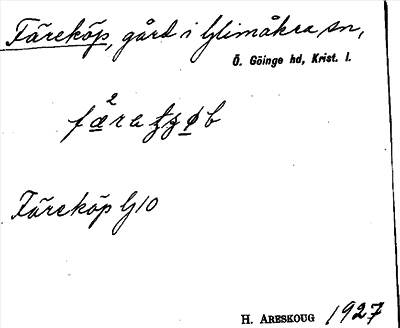 Färeköp, gård i Glimåkra sn,
Ö. Göinge hd, Krist. l.
Färeköp G10
H. ARESKOUG 1927